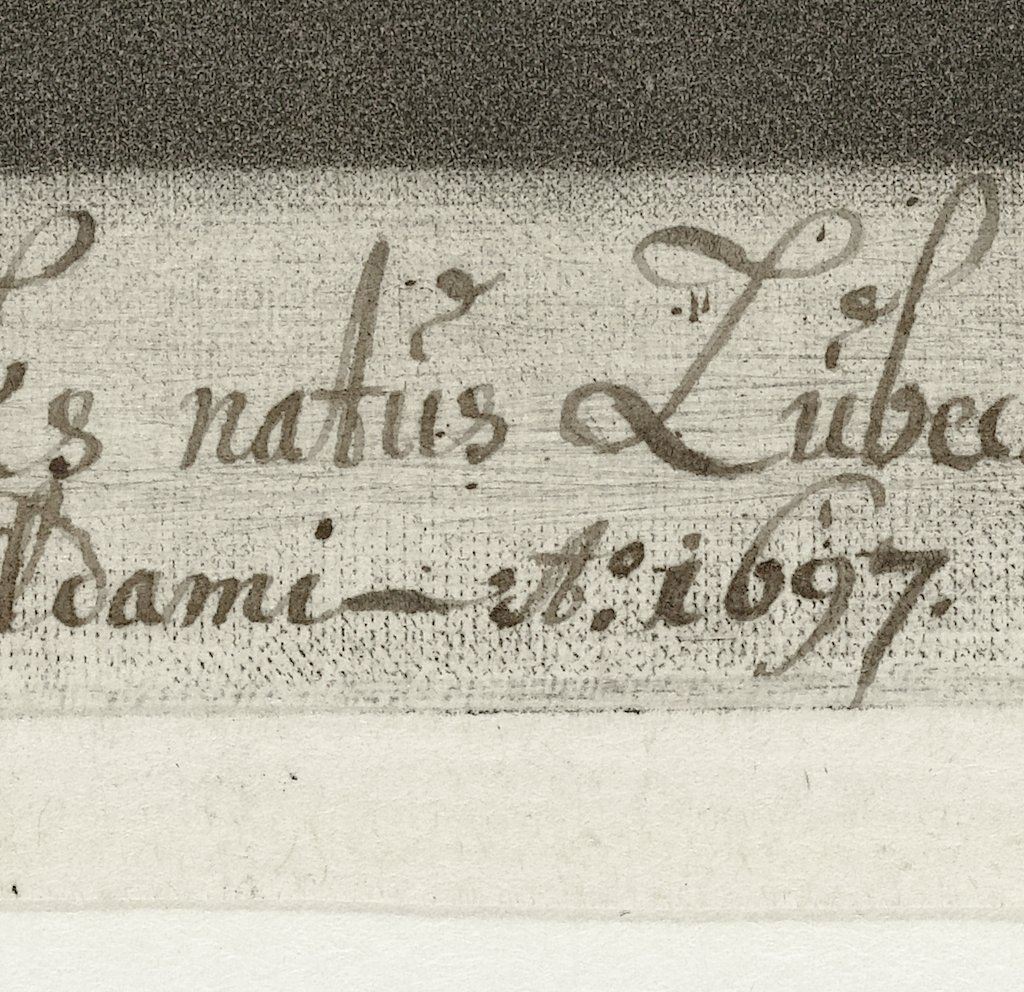 s natus Lubec
dami — A.º 1697.